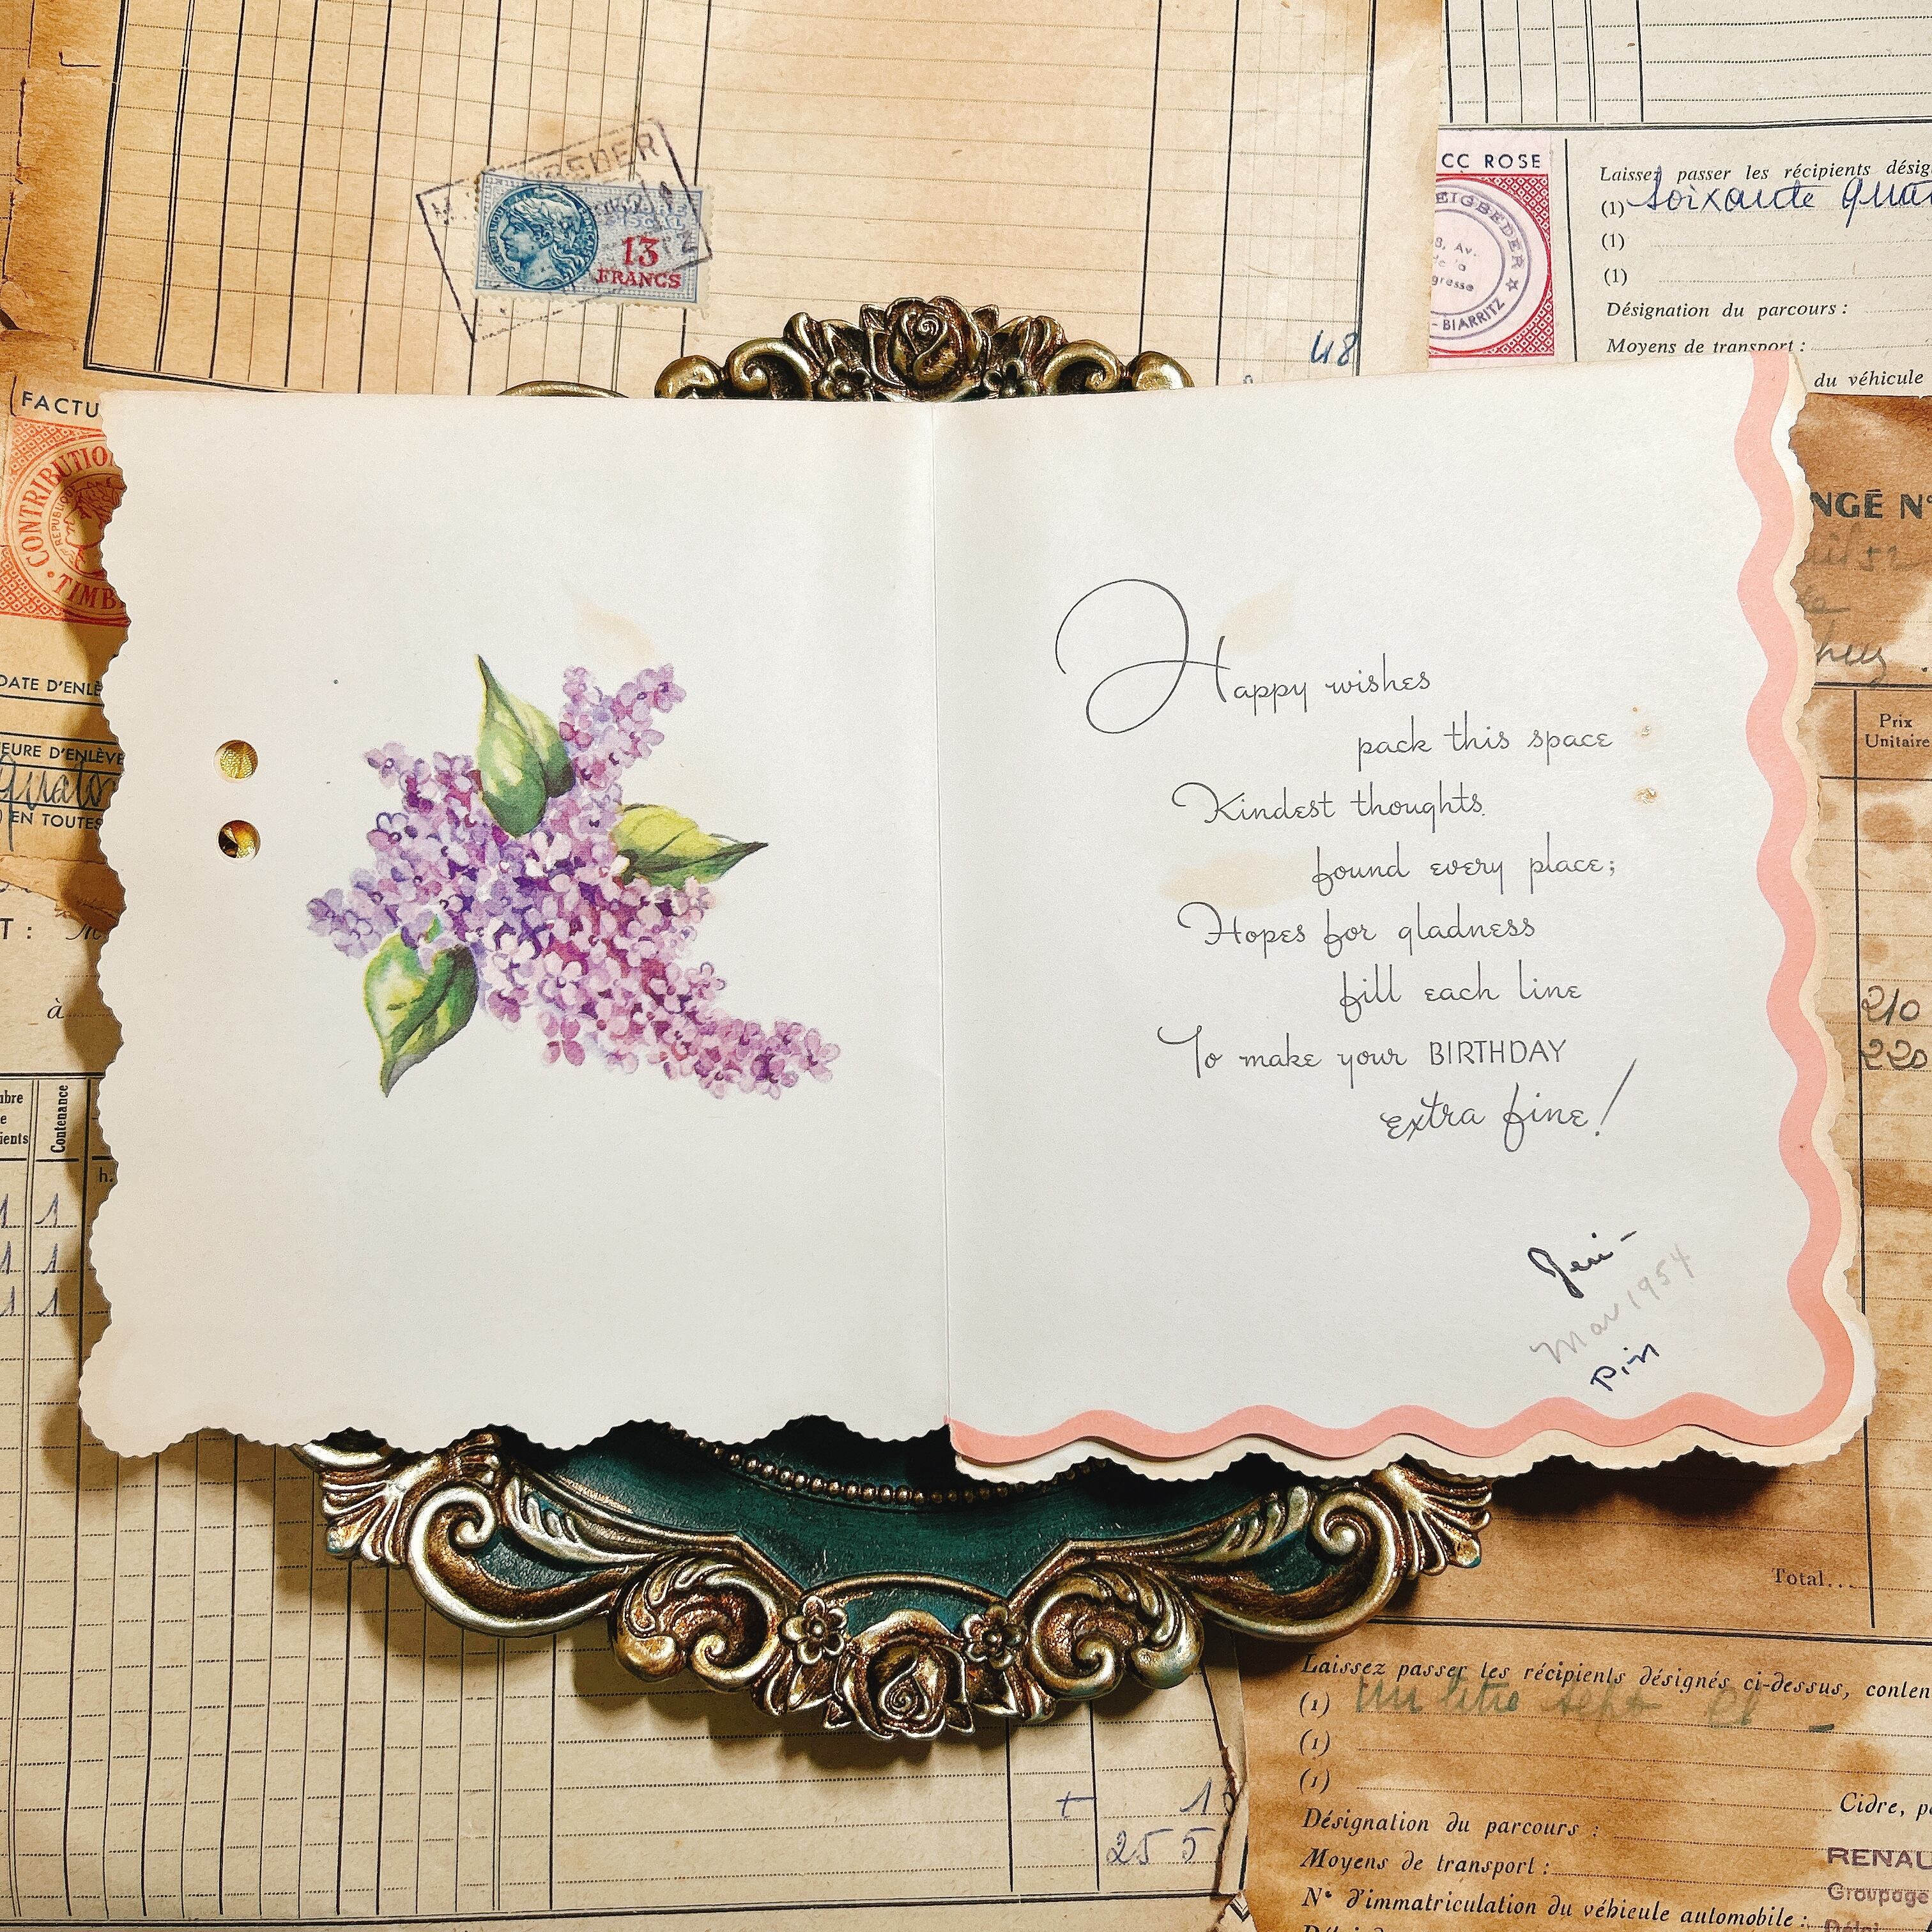 13
FRANCS
CC ROSE
EIGBEDER
de la
- BIARRITZ
Laissez passer les récipients désig
(1) soixante
(1)
(1)
Désignation du parcours :
Moyens de transport :
du véhicule
48
FACTU
CONTRIBUTION
TIMB
DATE D'ENLÈ
EURE D'ENLÈVE
EN TOUTES
T :
à
Contenance
h.
1 1
1 1
1 1
Happy wishes
pack this space
Kindest thoughts
found every place;
Hopes for gladness
fill each line
To make your BIRTHDAY
extra fine!
Jeri -
Mar 1954
Pin
NGÉ N°
Prix
Unitaire
210
220
Total...
Laissez passer les récipients désignés ci-dessus, conten
(1) Un litre sept
(1)
(1)
Cidre, p
Désignation du parcours :
Moyens de transport :
N° d'immatriculation du véhicule automobile :
RENAU
Groupage
+ 1
255